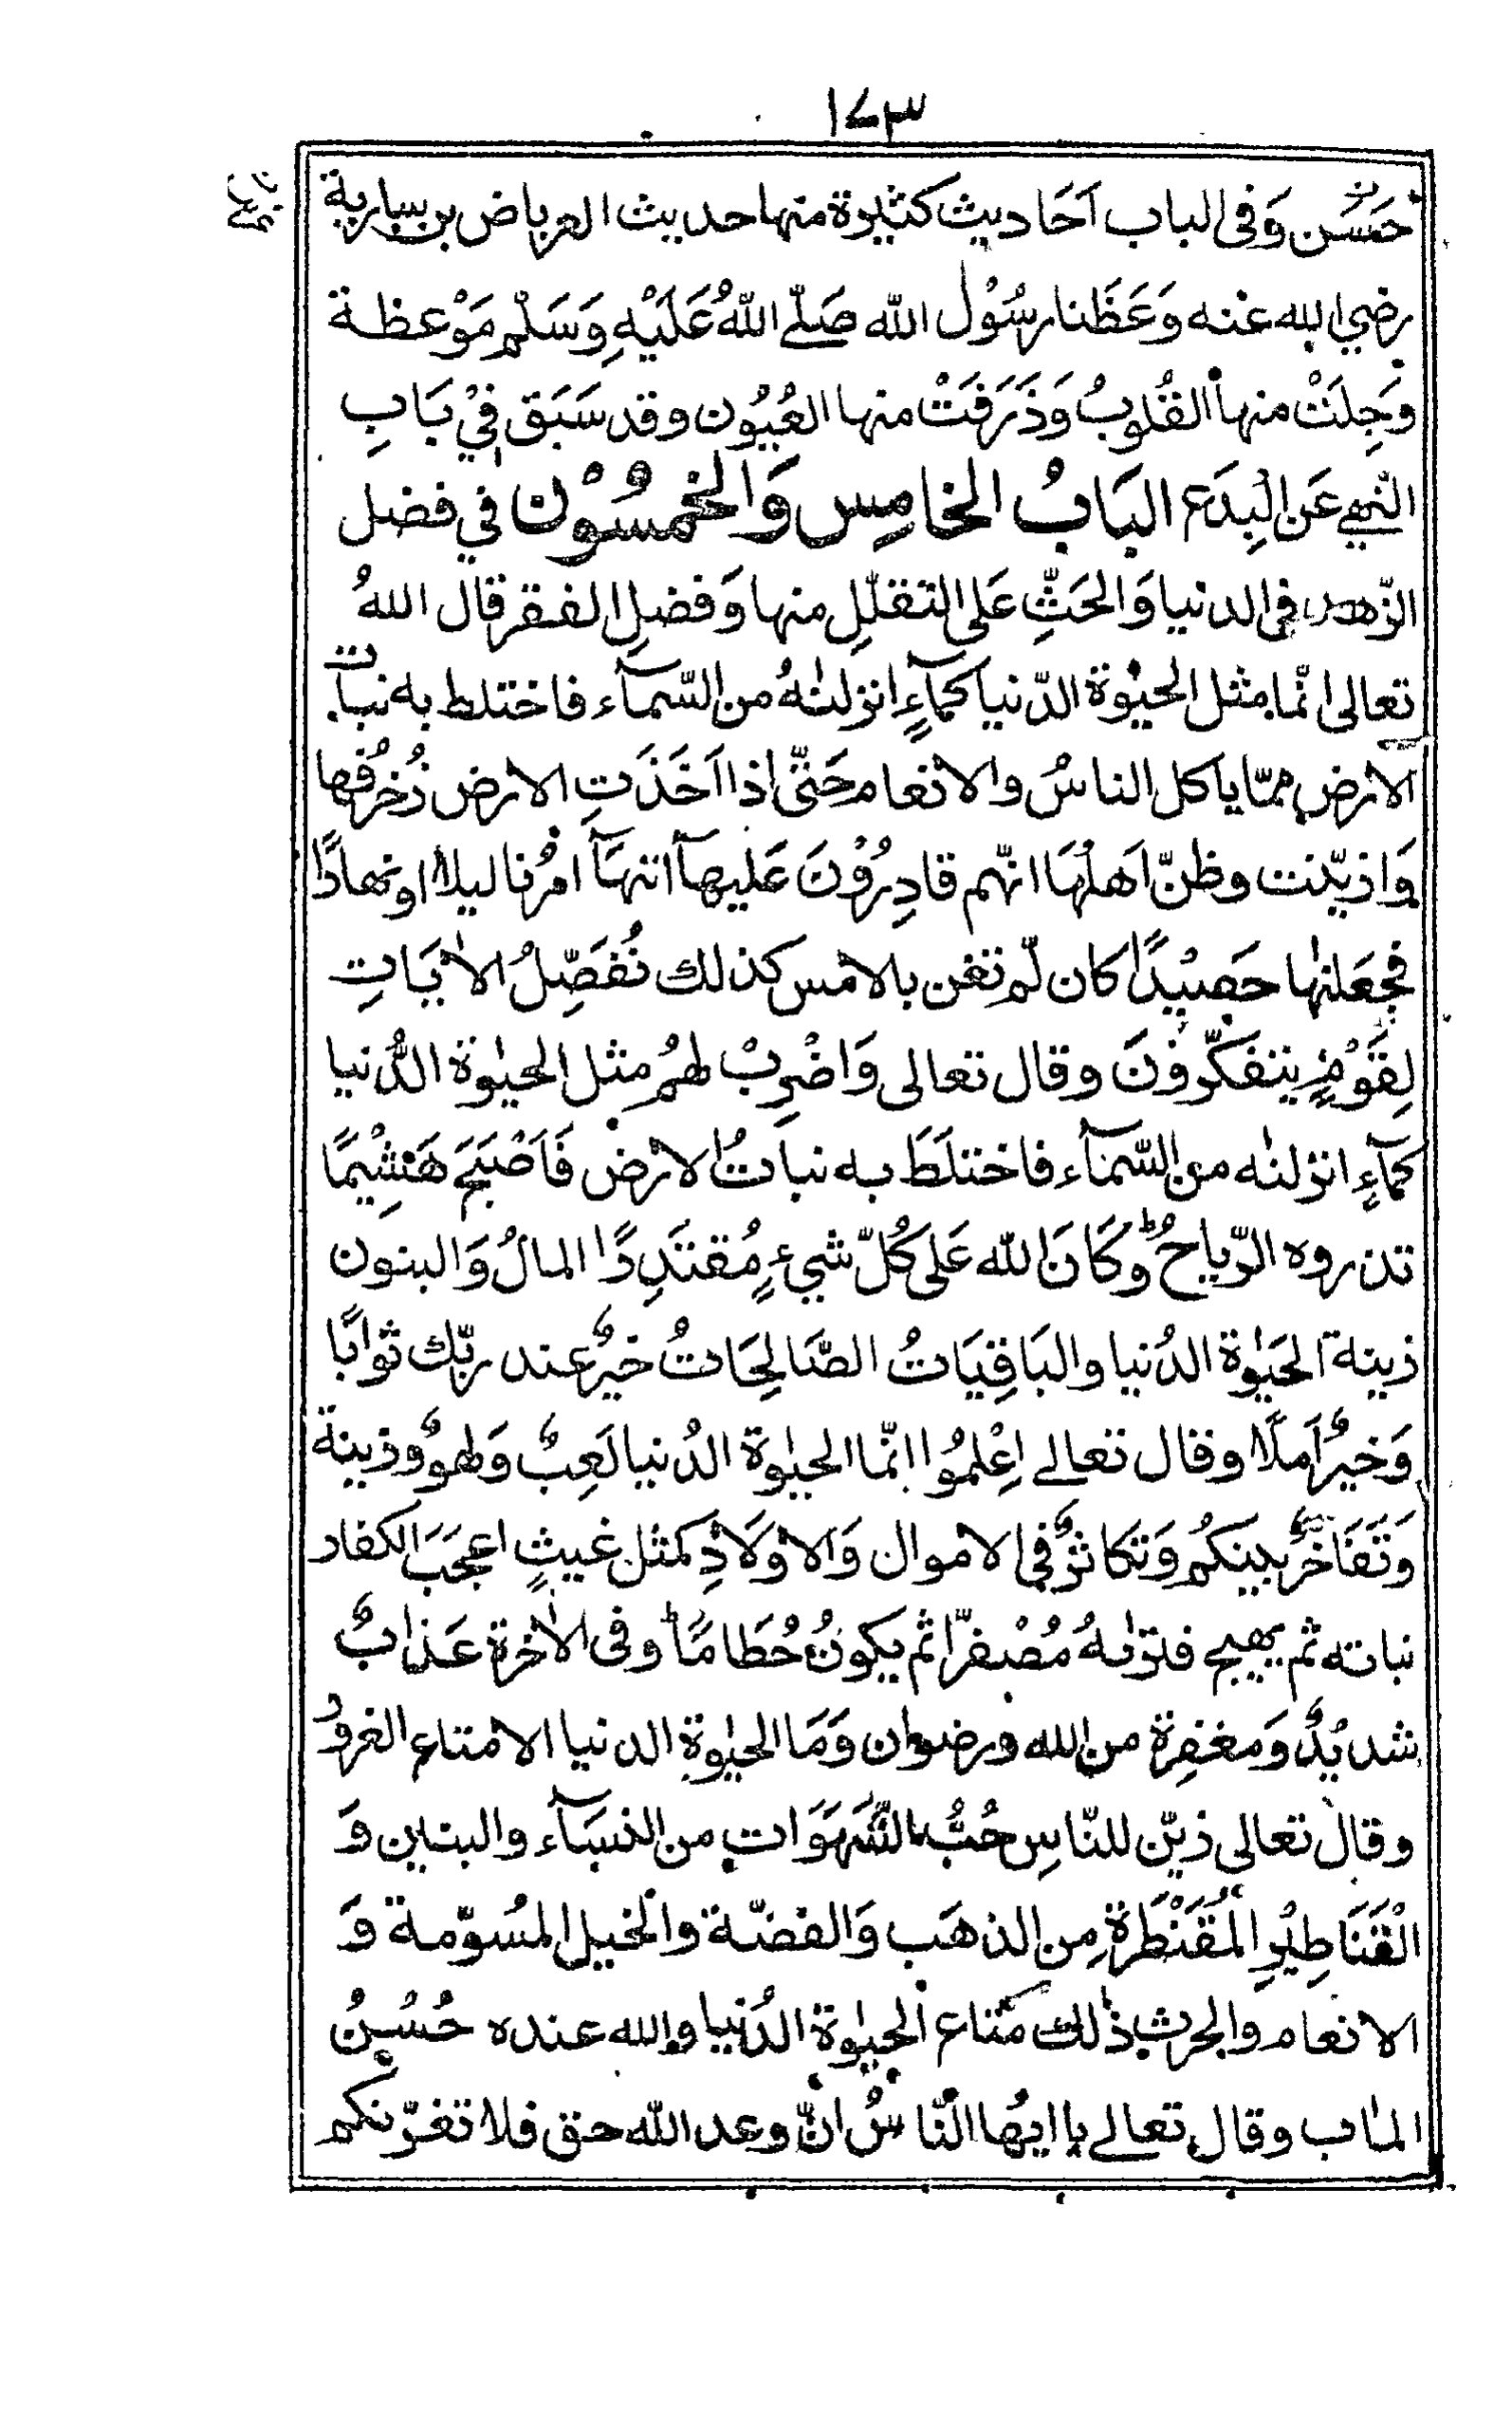 ١٧٣
حَسَن وَفي الباب اَحَاديث كثيرة منها حديث العرباض بن سارية
رضي الله عنه وَعَظَنا رسُوْل الله صَلّے اللّٰهُ عَلَيْهِ وَسَلّم مَوْعظة
وَجِلَتْ منها القُلوبُ وَذَرَفَتْ منها العُيُون وقد سَبَق فِيْ بَابِ
النّهي عَن البِدَع البَابُ الخامِس وَالخمسُوْن في فضل
الزّهد في الدنيا وَالحَثِّ عَلى التقلّلِ منها وَفضلِ الفقر قال اللهُ
تعالى انّما مثل الحيٰوة الدّنيا كمآءٍ انزلنٰهُ من السّمآء فاختلط به نبات
الارض ممّا ياكل الناسُ والانعام حَتّٰى اذا اَخَذَتِ الارض زُخرُفها
وَازيّنت وظنّ اَهلُهَا انّهم قادِرُوْنَ عَليهآ اتٰهَآ امرُنا ليلا او نهارًا
فجَعَلنٰها حَصِيْدًا كان لّم تغن بالامس كذلك نُفَصِّلُ الاٰيَاتِ
لِقَوْمٍ يتفكّرونَ وقال تعالى وَاضْرِبْ لهُم مثل الحيٰوة الدُّنيا
كمآءٍ انزلنٰه من السّمآء فاختلَطَ به نباتُ الارض فَاَصْبَحَ هَشِيْمًا
تذروه الرّياحُ ط وَكَانَ الله عَلى كُلّ شيءٍ مُقتَدِرًا المالُ وَالبنون
زينة الحَيٰوة الدُنيا والبَاقِيَاتُ الصَّالِحَاتُ خيرٌ عند ربّك ثوابًا
وَخيرٌ اَملًا وقال تعالے اِعْلمُوا انّما الحيٰوة الدُنيا لَعِبٌ وَلهوٌ وزينة
وَتَفَاخرٌ بينكُم وَتكاثرٌ في الاموال وَالاوْلَادِ كمثل غيثٍ اعجَبَ الكفار
نباته ثم يهيج فترٰىهُ مُصْفرّا ثم يكونُ حُطَامًا ط وفي الاٰخرة عَذابٌ
شديْدٌ وَمغفِرة من الله ورضوان وَمَا الحيٰوة الدنيا الا متاع الغرور
وقال تعالى زيّن للنّاسِ حُبُّ الشَّهَوَات من النسَآء والبنين وَ
الْقَنَاطِيْرِ الْمُقَنْطَرَة مِن الذهَب وَالفضّة والخيل المسُوّمة وَ
الانعام والحرث ذٰلك مَتاع الحيٰوة الدُنيا والله عنده حُسْنُ
المٰاب وقال تعالے يا ايهَا النّاسُ انّ وعد الله حق فلا تغرّنكم